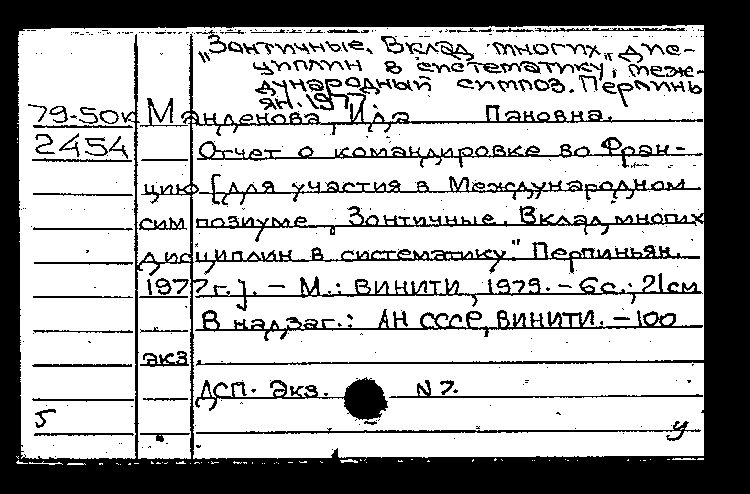 „Зонтичные. Вклад многих дис-
циплин в систематику", меж-
дународный симпоз. Перпинь
ян. 1977
79-50к Манденова, Ида Пановна.
2454 Отчет о командировке во Фран-
цию [для участия в Международном
симпозиуме „Зонтичные. Вклад многих
дисциплин в систематику." Перпиньян.
1977 г.]. – М.: ВИНИТИ, 1979. – 6с.; 21см
В надзаг.: АН СССР, ВИНИТИ. – 100
экз.
ДСП. Экз. N 7.
5 у